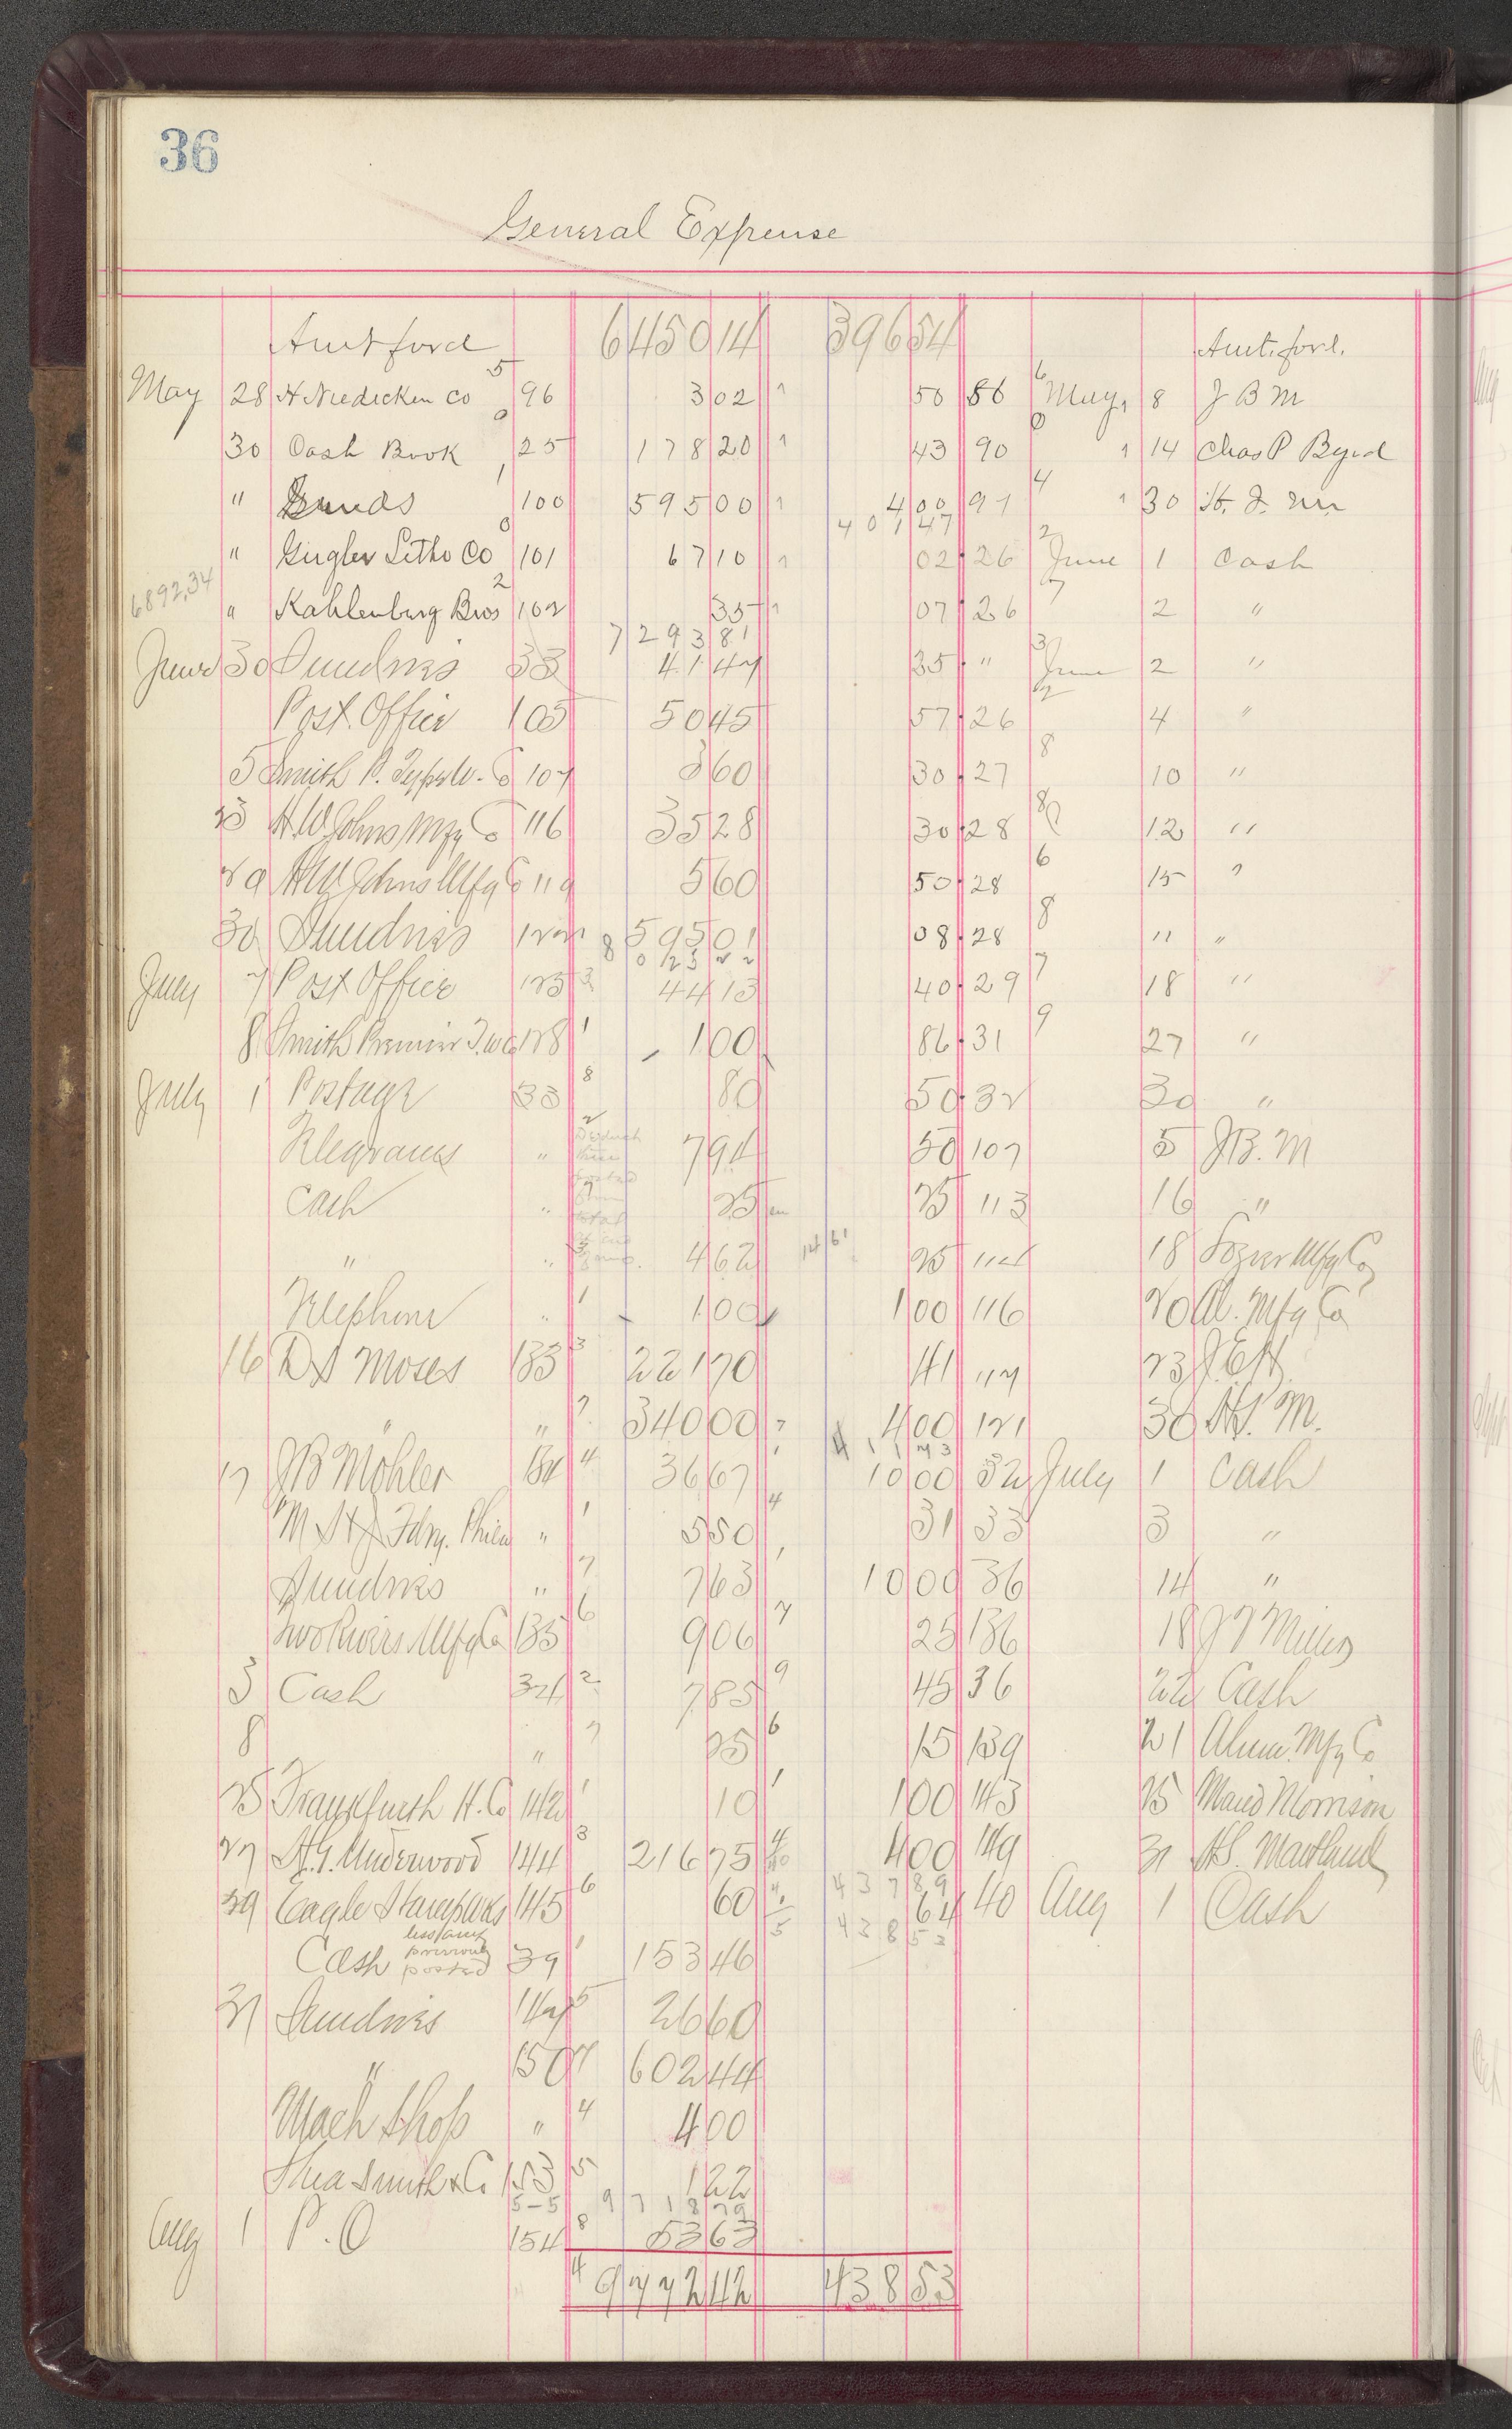 36
General Expense
Amt ford 6450 14 396 54 Amt. ford.
May 28 H Niedecken Co 5 96 3 02 50 86 6 May 8 J B M
30 Cash Book 0 25 178 20 43 90 0 14 Chas P Byrd
" 1 100 595 00 4 00 97 4 30
401 47
" Gugler Litho Co 0 101 67 10 02 26 2 June 1 Cash
6892.34 " Kahlenburg Bros 2 102 35 07 26 7 2 "
7293 81
June 30 Sundries 33 41 47 35 " 3 June 2 "
Post Office 105 50 45 57 26 2 4 "
5 Smith P. Typew. Co 107 3 60 30 27 8 10 "
23 H W Johns Mfg Co 116 35 28 30 28 8 12 "
29 H W Johns Mfg Co 119 5 60 50 28 6 15 "
30 Sundries 122 595 01 08 28 8 " "
8025 22
July 7 Post Office 123 3 44 13 40 29 7 18 "
8 Smith Premier T. W Co 128 1 1 00 86 31 9 27 "
July 1 Postage 33 8 80 50 32 30 "
Telegrams " 2 7 94 50 107 5 J B. M
Cash " 25 25 113 16 "
" " 4 62 14 61 25 114 18 Mfg Co
Telephone " 1 1 00 1 00 116 20 Al. Mfg Co
16 D S Moses 133 3 221 70 41 117 23
" " 7 340 00 4 00 121 30 H S. M.
411 73
17 J B Mohler 134 4 36 67 10 00 32 July 1 Cash
" 1 5 50 31 33 3 "
Sundries " 7 7 63 10 00 36 14 "
Two Rivers Mfg Co 135 6 9 06 25 136 18 J T
3 Cash 34 2 7 85 45 36 22 Cash
8 " 7 25 15 139 21 Alum. Mfg Co
25 Frankfurth H. Co 142 1 10 1 00 143 25 Maud Morrison
27 H. G. Underwood 144 3 216 75 4 00 149 31 H S. Maitland
29 Eagle Stamp Wks 145 6 60 437 89 64 40 Aug 1 Cash
438 53
Cash less amt previously posted 39 1 153 46
31 Sundries 147 5 26 60
" 150 7 602 44
Mach Shop " 4 4 00
Shea Smith & Co 153 5 1 22
5-5 9718 79
Aug 1 P. O 154 8 53 63
4 9772 42 438 53